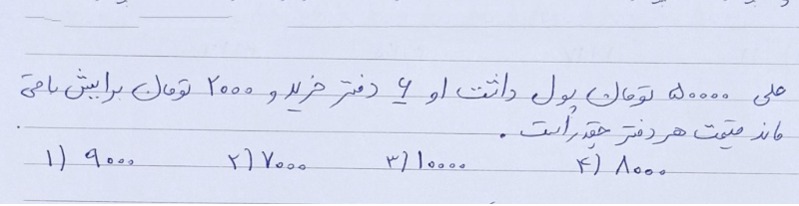 علی ۵۰۰۰۰ تومان پول داشت او ۶ دفتر خرید و ۲۰۰۰ تومان برایش باقی
ماند قیمت هر دفتر چقدر است .
۱) ۹۰۰۰ ۲) ۷۰۰۰ ۳) ۱۰۰۰۰ ۴) ۸۰۰۰